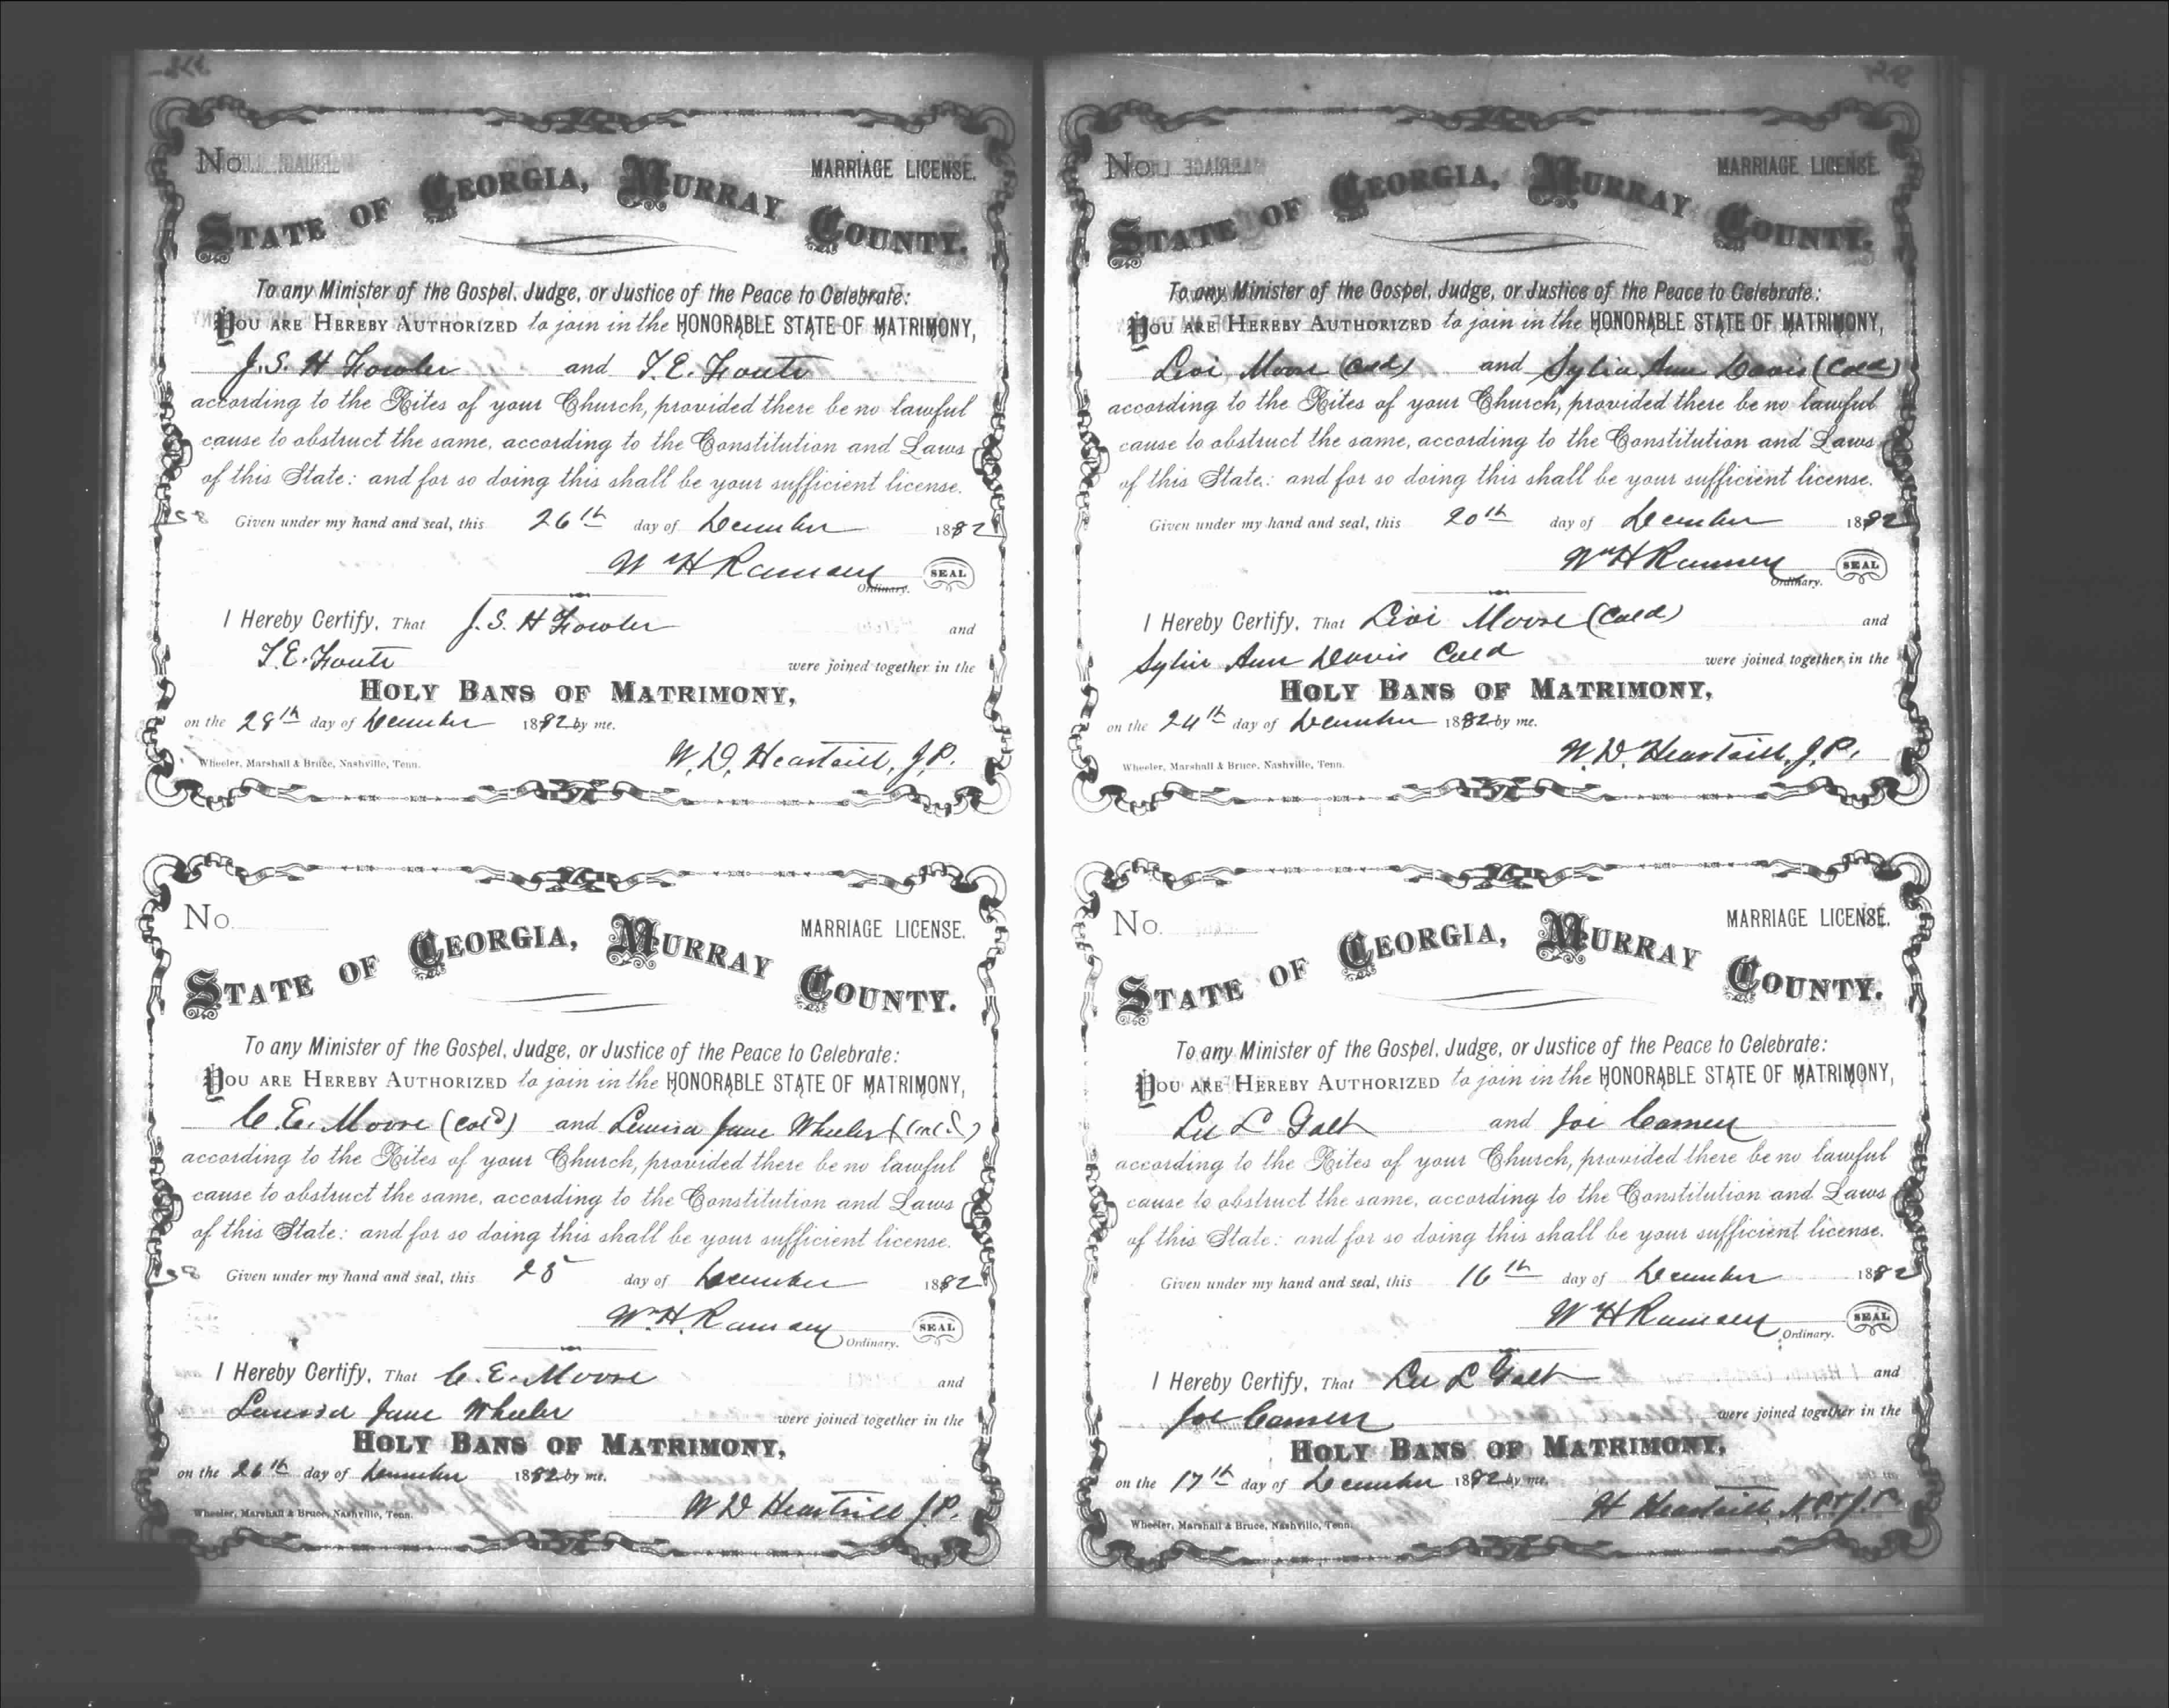 No. MARRIAGE LICENSE.
STATE OF GEORGIA, MURRAY COUNTY.
To any Minister of the Gospel, Judge, or Justice of the Peace to Celebrate:
YOU ARE HEREBY AUTHORIZED to join in the HONORABLE STATE OF MATRIMONY,
J. S. H Fowler and T. E. Fouts
according to the Rites of your Church, provided there be no lawful
cause to obstruct the same, according to the Constitution and Laws
of this State: and for so doing this shall be your sufficient license.
Given under my hand and seal, this 26th day of December 1882
Wm H Ramsey SEAL
Ordinary.
I Hereby Certify, That J. S. H Fowler and
T. E. Fouts were joined together in the
HOLY BANS OF MATRIMONY,
on the 28th day of December 1882 by me.
W. D. Heartsill, J.P.
Wheeler, Marshall & Bruce, Nashville, Tenn.
No. MARRIAGE LICENSE.
STATE OF GEORGIA, MURRAY COUNTY.
To any Minister of the Gospel, Judge, or Justice of the Peace to Celebrate:
YOU ARE HEREBY AUTHORIZED to join in the HONORABLE STATE OF MATRIMONY,
C. E. Moore (Cold) and Louisa Jane Wheeler (Cold)
according to the Rites of your Church, provided there be no lawful
cause to obstruct the same, according to the Constitution and Laws
of this State: and for so doing this shall be your sufficient license.
Given under my hand and seal, this 25 day of December 1882
Wm. H. Ramsey SEAL
Ordinary.
I Hereby Certify, That C. E. Moore and
Louisa Jane Wheeler were joined together in the
HOLY BANS OF MATRIMONY,
on the 26th day of December 1882 by me.
W D Heartsill J.P.
Wheeler, Marshall & Bruce, Nashville, Tenn.
No. MARRIAGE LICENSE.
STATE OF GEORGIA, MURRAY COUNTY.
To any Minister of the Gospel, Judge, or Justice of the Peace to Celebrate:
YOU ARE HEREBY AUTHORIZED to join in the HONORABLE STATE OF MATRIMONY,
Levi Moore (Cold) and Sylvia Ann Davis (Cold)
according to the Rites of your Church, provided there be no lawful
cause to obstruct the same, according to the Constitution and Laws
of this State: and for so doing this shall be your sufficient license.
Given under my hand and seal, this 20th day of December 1882
Wm H Ramsey SEAL
Ordinary.
I Hereby Certify, That Levi Moore (Cold) and
Sylvia Ann Davis Cold were joined together in the
HOLY BANS OF MATRIMONY,
on the 24th day of December 1882 by me.
W. D. Heartsill, J.P.
Wheeler, Marshall & Bruce, Nashville, Tenn.
No. MARRIAGE LICENSE.
STATE OF GEORGIA, MURRAY COUNTY.
To any Minister of the Gospel, Judge, or Justice of the Peace to Celebrate:
YOU ARE HEREBY AUTHORIZED to join in the HONORABLE STATE OF MATRIMONY,
Lee L Galt and Joe
according to the Rites of your Church, provided there be no lawful
cause to obstruct the same, according to the Constitution and Laws
of this State: and for so doing this shall be your sufficient license.
Given under my hand and seal, this 16th day of December 1882
Wm H Ramsey SEAL
Ordinary.
I Hereby Certify, That Lee L Galt and
Joe were joined together in the
HOLY BANS OF MATRIMONY,
on the 17th day of December 1882 by me.
H Heartsill, N.P. & J.P.
Wheeler, Marshall & Bruce, Nashville, Tenn.